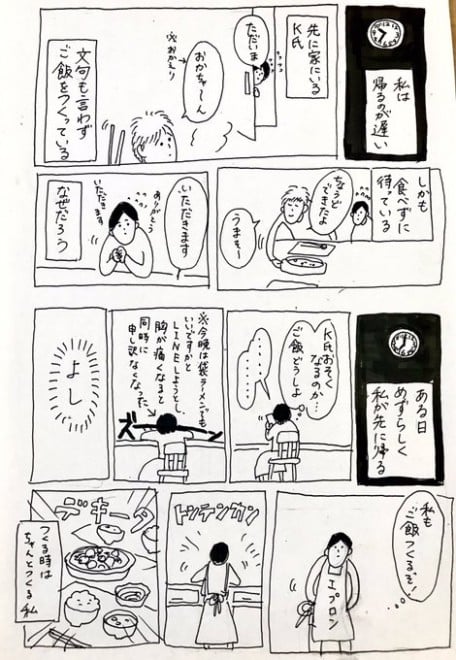 私は
帰るのが遅い
先に家にいる
K氏
ただいま
おかちゃ〜ん
※おかえり
文句も言わず
ご飯をつくっている
しかも
食べずに
待っている
ちょうど
できたよ
うまそ〜
いただきます
ありがとう
いただきます
なぜだろう
ある日
めずらしく
私が先に帰る
K氏おそく
なるのか…
ご飯どうしよ
※今晩は袋ラーメンでも
いいですかと
LINEしようとし、
胸が痛くなると
同時に
申し訳なくなった
ズーン
よし
私も
ご飯つくるぞ!
エプロン
トンテンカン
デキータ
つくる時は
ちゃんとつくる私